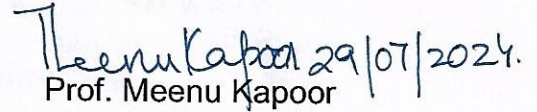 Meenu Kapoor 29/07/2024.
Prof. Meenu Kapoor